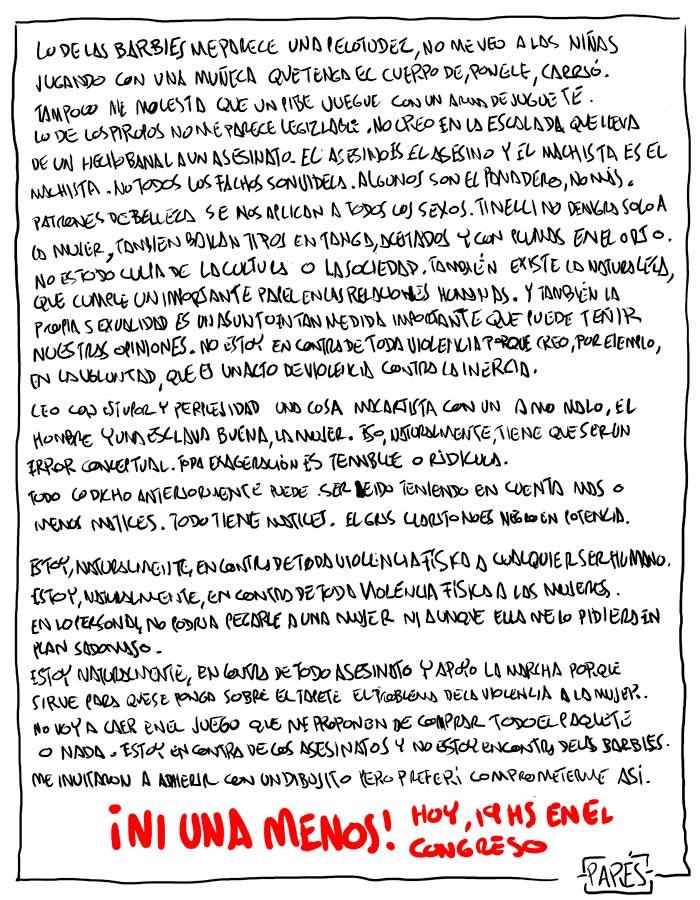 LO DE LAS BARBIES ME PARECE UNA PELOTUDEZ, NO ME VEO A LAS NIÑAS
JUGANDO CON UNA MUÑECA QUE TENGA EL CUERPO DE, PONELE, CARRIÓ.
TAMPOCO ME MOLESTA QUE UN PIBE JUEGUE CON UN ARMA DE JUGUETE.
LO DE LOS PIROPOS NO ME PARECE LEGIZLABLE. NO CREO EN LA ESCALADA QUE LLEVA
DE UN HECHO BANAL A UN ASESINATO. EL ASESINO ES EL ASESINO Y EL MACHISTA ES EL
MACHISTA. NO TODOS LOS FACHOS SON VIDELA. ALGUNOS SON EL PANADERO, NO MÁS.
PATRONES DE BELLEZA SE NOS APLICAN A TODOS LOS SEXOS. TINELLI NO DENIGRA SOLO A
LA MUJER, TAMBIEN BAILAN TIPOS EN TANGA, ACEITADOS Y CON PLUMAS EN EL ORTO.
NO ES TODO CULPA DE LA CULTURA O LA SOCIEDAD. TAMBIÉN EXISTE LA NATURALEZA,
QUE CUMPLE UN IMPORTANTE PAPEL EN LAS RELACIONES HUMANAS. Y TAMBIÉN LA
PROPIA SEXUALIDAD ES UN ASUNTO IN TAN MEDIDA IMPORTANTE QUE PUEDE TEÑIR
NUESTRAS OPINIONES. NO ESTOY EN CONTRA DE TODA VIOLENCIA PORQUE CREO, POR EJEMPLO,
EN LA VOLUNTAD, QUE ES UN ACTO DE VIOLENCIA CONTRA LA INERCIA.
LEO CON ESTUPOR Y PERPLEJIDAD UNA COSA MACARTISTA CON UN AMO MALO, EL
HOMBRE Y UNA ESCLAVA BUENA, LA MUJER. ESO, NATURALMENTE, TIENE QUE SER UN
ERROR CONCEPTUAL. TODA EXAGERACIÓN ES TERRIBLE O RIDÍCULA.
TODO LO DICHO ANTERIORMENTE PUEDE SER LEIDO TENIENDO EN CUENTA MAS O
MENOS MATICES. TODO TIENE MATICES. EL GRIS CLARITO NO ES NEGRO EN POTENCIA.
ESTOY, NATURALMENTE, EN CONTRA DE TODA VIOLENCIA FÍSICA A CUALQUIER SER HUMANO.
ESTOY, NATURALMENTE, EN CONTRA DE TODA VIOLENCIA FÍSICA A LAS MUJERES.
EN LO PERSONAL, NO PODRIA PEGARLE A UNA MUJER NI AUNQUE ELLA ME LO PIDIERA EN
PLAN SADOMASO.
ESTOY NATURALMENTE, EN CONTRA DE TODO ASESINATO Y APOYO LA MARCHA PORQUE
SIRVE PARA QUE SE PONGA SOBRE EL TAPETE EL PROBLEMA DE LA VIOLENCIA A LA MUJER.
NO VOY A CAER EN EL JUEGO QUE ME PROPONEN DE COMPRAR TODO EL PAQUETE
O NADA. ESTOY EN CONTRA DE LOS ASESINATOS Y NO ESTOY EN CONTRA DE LAS BARBIES.
ME INVITARON A ADHERIR CON UN DIBUJITO PERO PREFERÍ COMPROMETERME ASÍ.
¡NI UNA MENOS! HOY, 19 HS EN EL
CONGRESO
PARÉS